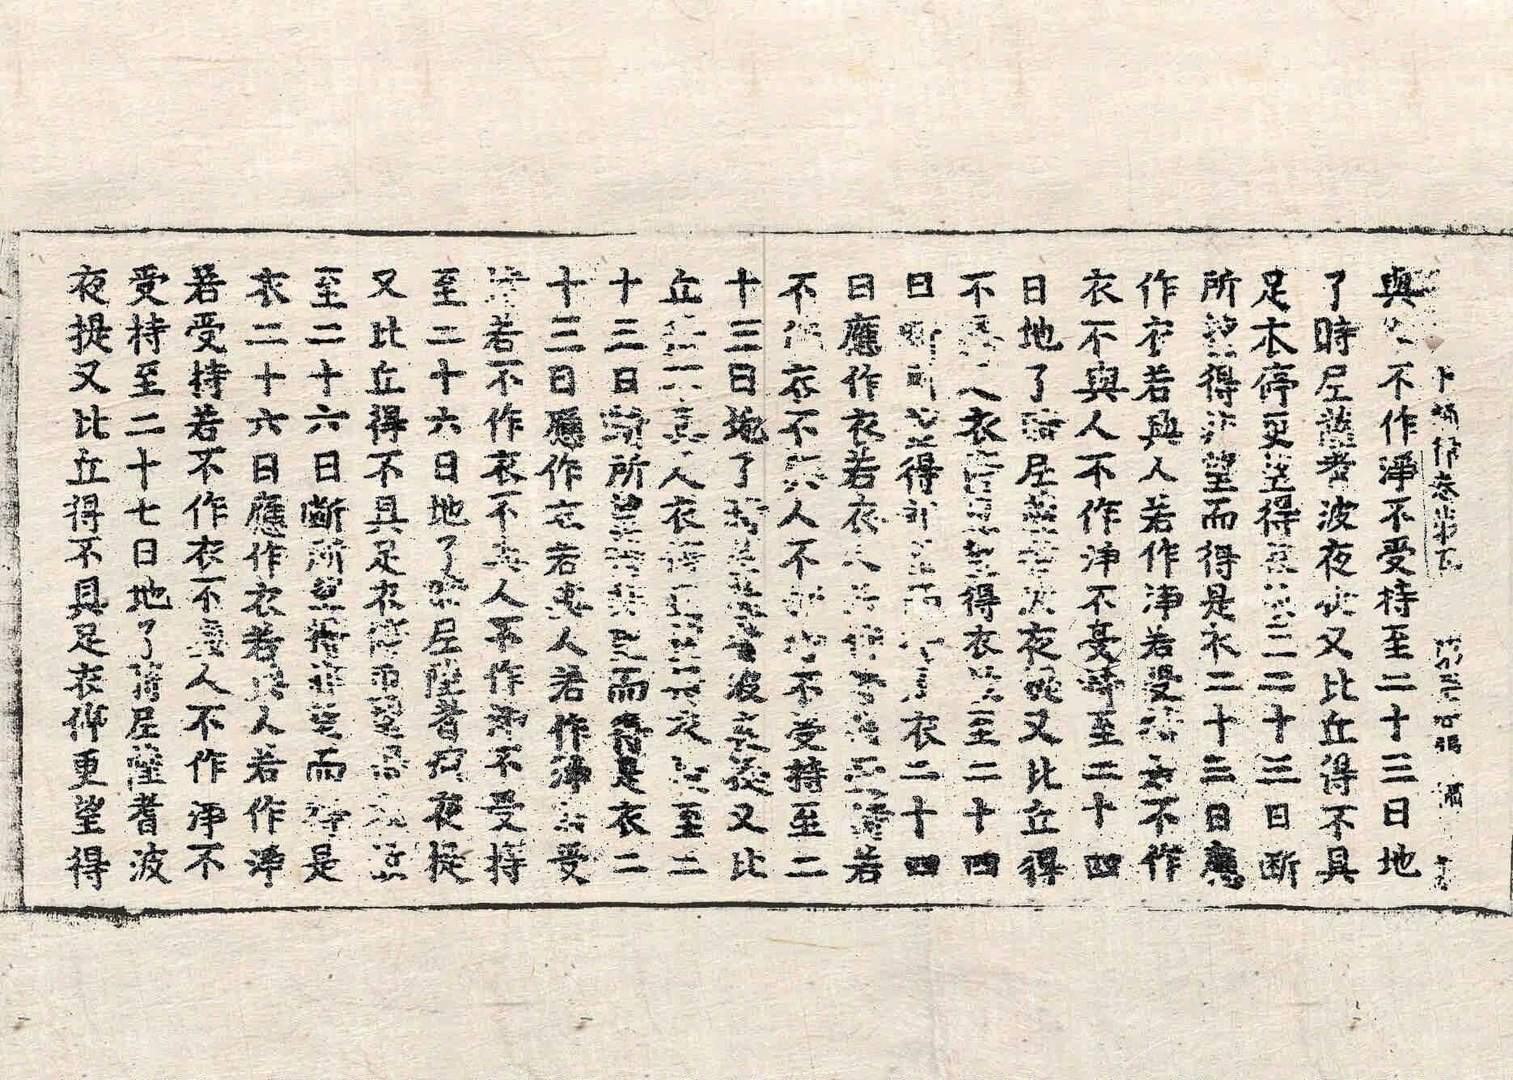 誦律卷第五 張
與不作淨不受持至二十三日地
了時尼薩耆波夜提又比丘得不具
足衣停更望得二十三日斷
所望得非望而得是衣二十三日應
作衣若與人若作淨若受持若不作
衣不與人不作淨不受持至二十四
日地了時尼薩耆波夜提又比丘得
不具足衣停更望得衣乃至二十四
日斷所望得非望而得是衣二十四
日應作衣若與人若作淨若受持若
不作衣不與人不作淨不受持至二
十三日地了時尼薩耆波夜提又比
丘得不具足衣停更望得衣乃至二
十三日斷所望得非望而得是衣二
十三日應作衣若與人若作淨若受
持若不作衣不與人不作淨不受持
至二十六日地了時尼薩耆波夜提
又比丘得不具足衣停更望得衣乃
至二十六日斷所望得非望而得是
衣二十六日應作衣若與人若作淨
若受持若不作衣不與人不作淨不
受持至二十七日地了時尼薩耆波
夜提又比丘得不具足衣停更望得